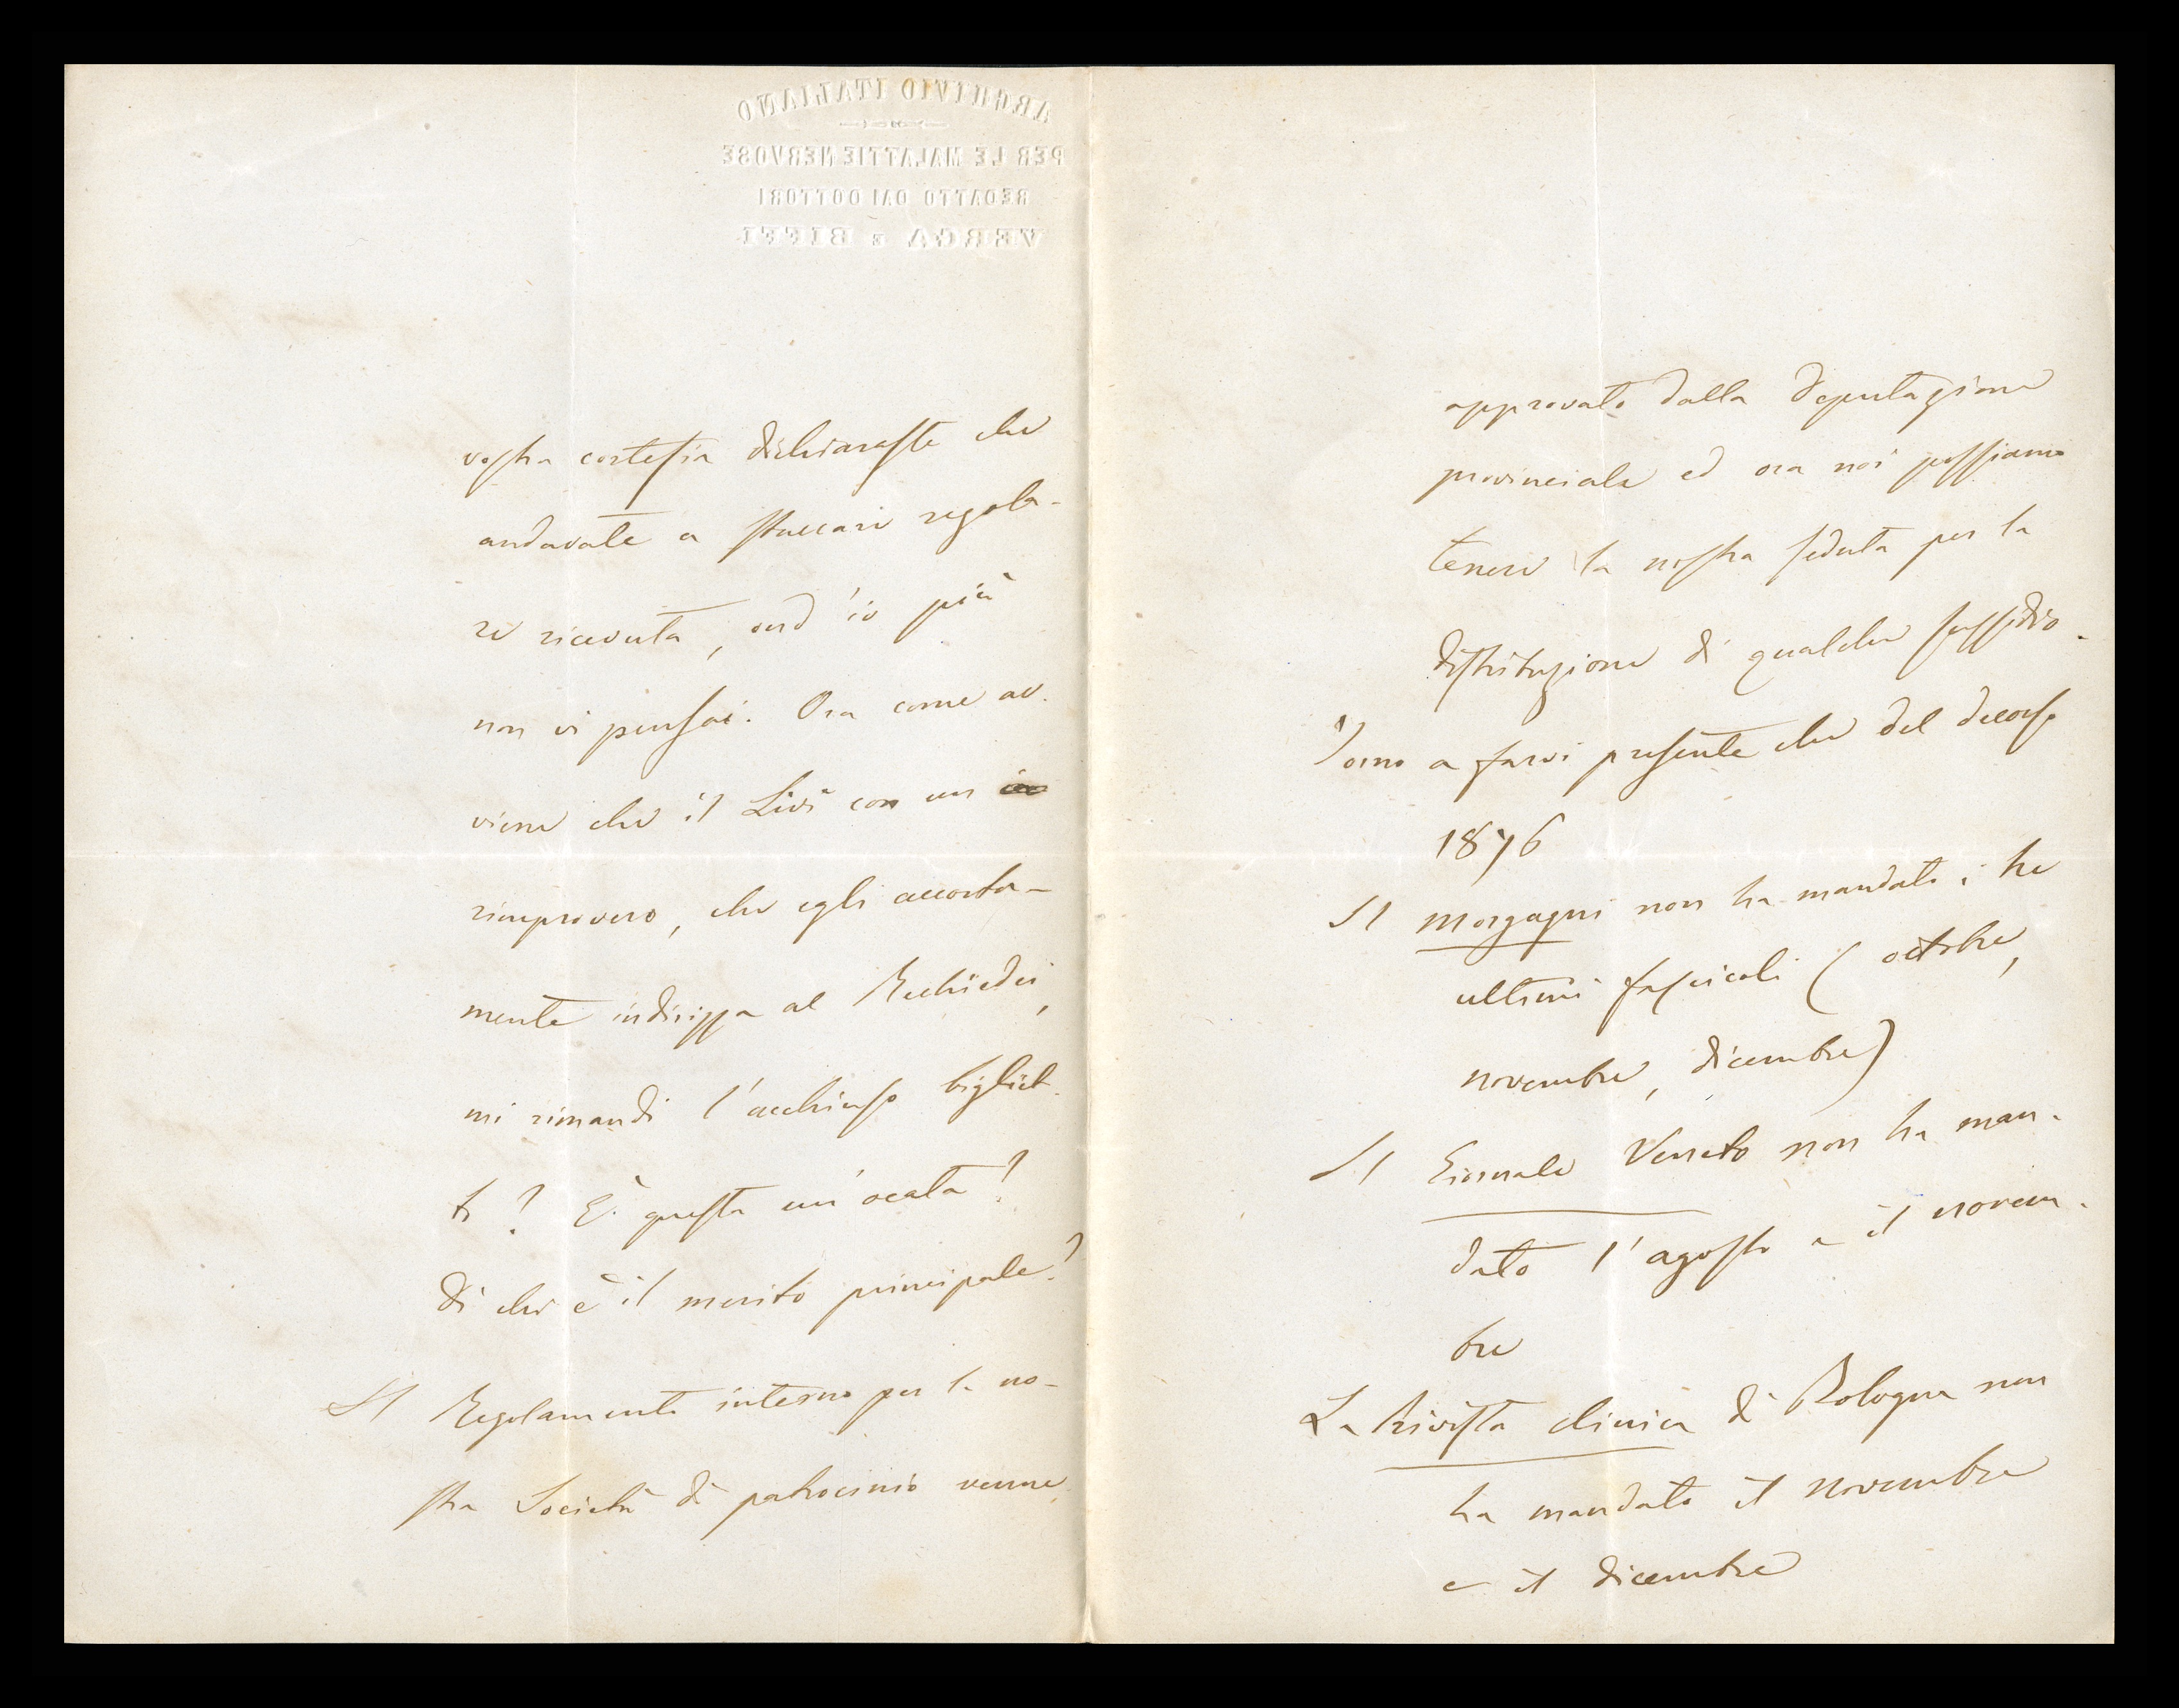 ARCHIVIO ITALIANO
PER LE MALATTIE NERVOSE
REDATTO DAI DOTTORI
VERGA E BIFFI
vostra cortesia dichiaraste che
andavate a staccare regola-
re ricevuta, ond'io più
non vi pensai. Ora come av-
viene che il Livi con un
rimprovero, che egli accorta-
mente indirizza al Rechiedei,
mi rimandi l'acchiuso bigliet-
to? È questa un'ocata?
Di chi è il merito principale?
Il Regolamento interno per la no-
stra Società di patrocinio venne
approvato dalla Deputazione
provinciale ed ora noi possiamo
tenere la nostra seduta per la
distribuzione di qualche sussidio.
Torno a farvi presente che del decorso
1876
Il Morgagni non ha mandato i tre
ultimi fascicoli (ottobre,
novembre, dicembre)
Il Giornale Veneto non ha man-
dato l'agosto e il novem-
bre
La Rivista clinica di Bologna non
ha mandato il novembre
e il dicembre